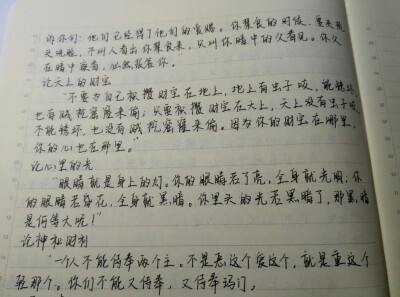 诉你们:他们已经得了他们的赏赐。你禁食的时候,要梳头
洗脸,不叫人看出你禁食来,只叫你暗中的父看见。你父
在暗中察看,必然报答你。
论天上的财宝
“不要为自己积攒财宝在地上,地上有虫子咬,能锈坏,
也有贼挖窟窿来偷;只要积攒财宝在天上,天上没有虫子咬
不能锈坏,也没有贼挖窟窿来偷。因为你的财宝在哪里,
你的心也在那里。”
论心里的光
“眼睛就是身上的灯。你的眼睛若了亮,全身就光明;你
的眼睛若昏花,全身就黑暗。你里头的光若黑暗了,那黑暗
是何等大呢!”
论神和财利
“一个人不能侍奉两个主。不是恶这个爱这个,就是重这个
轻那个。你们不能又侍奉,又侍奉玛门。